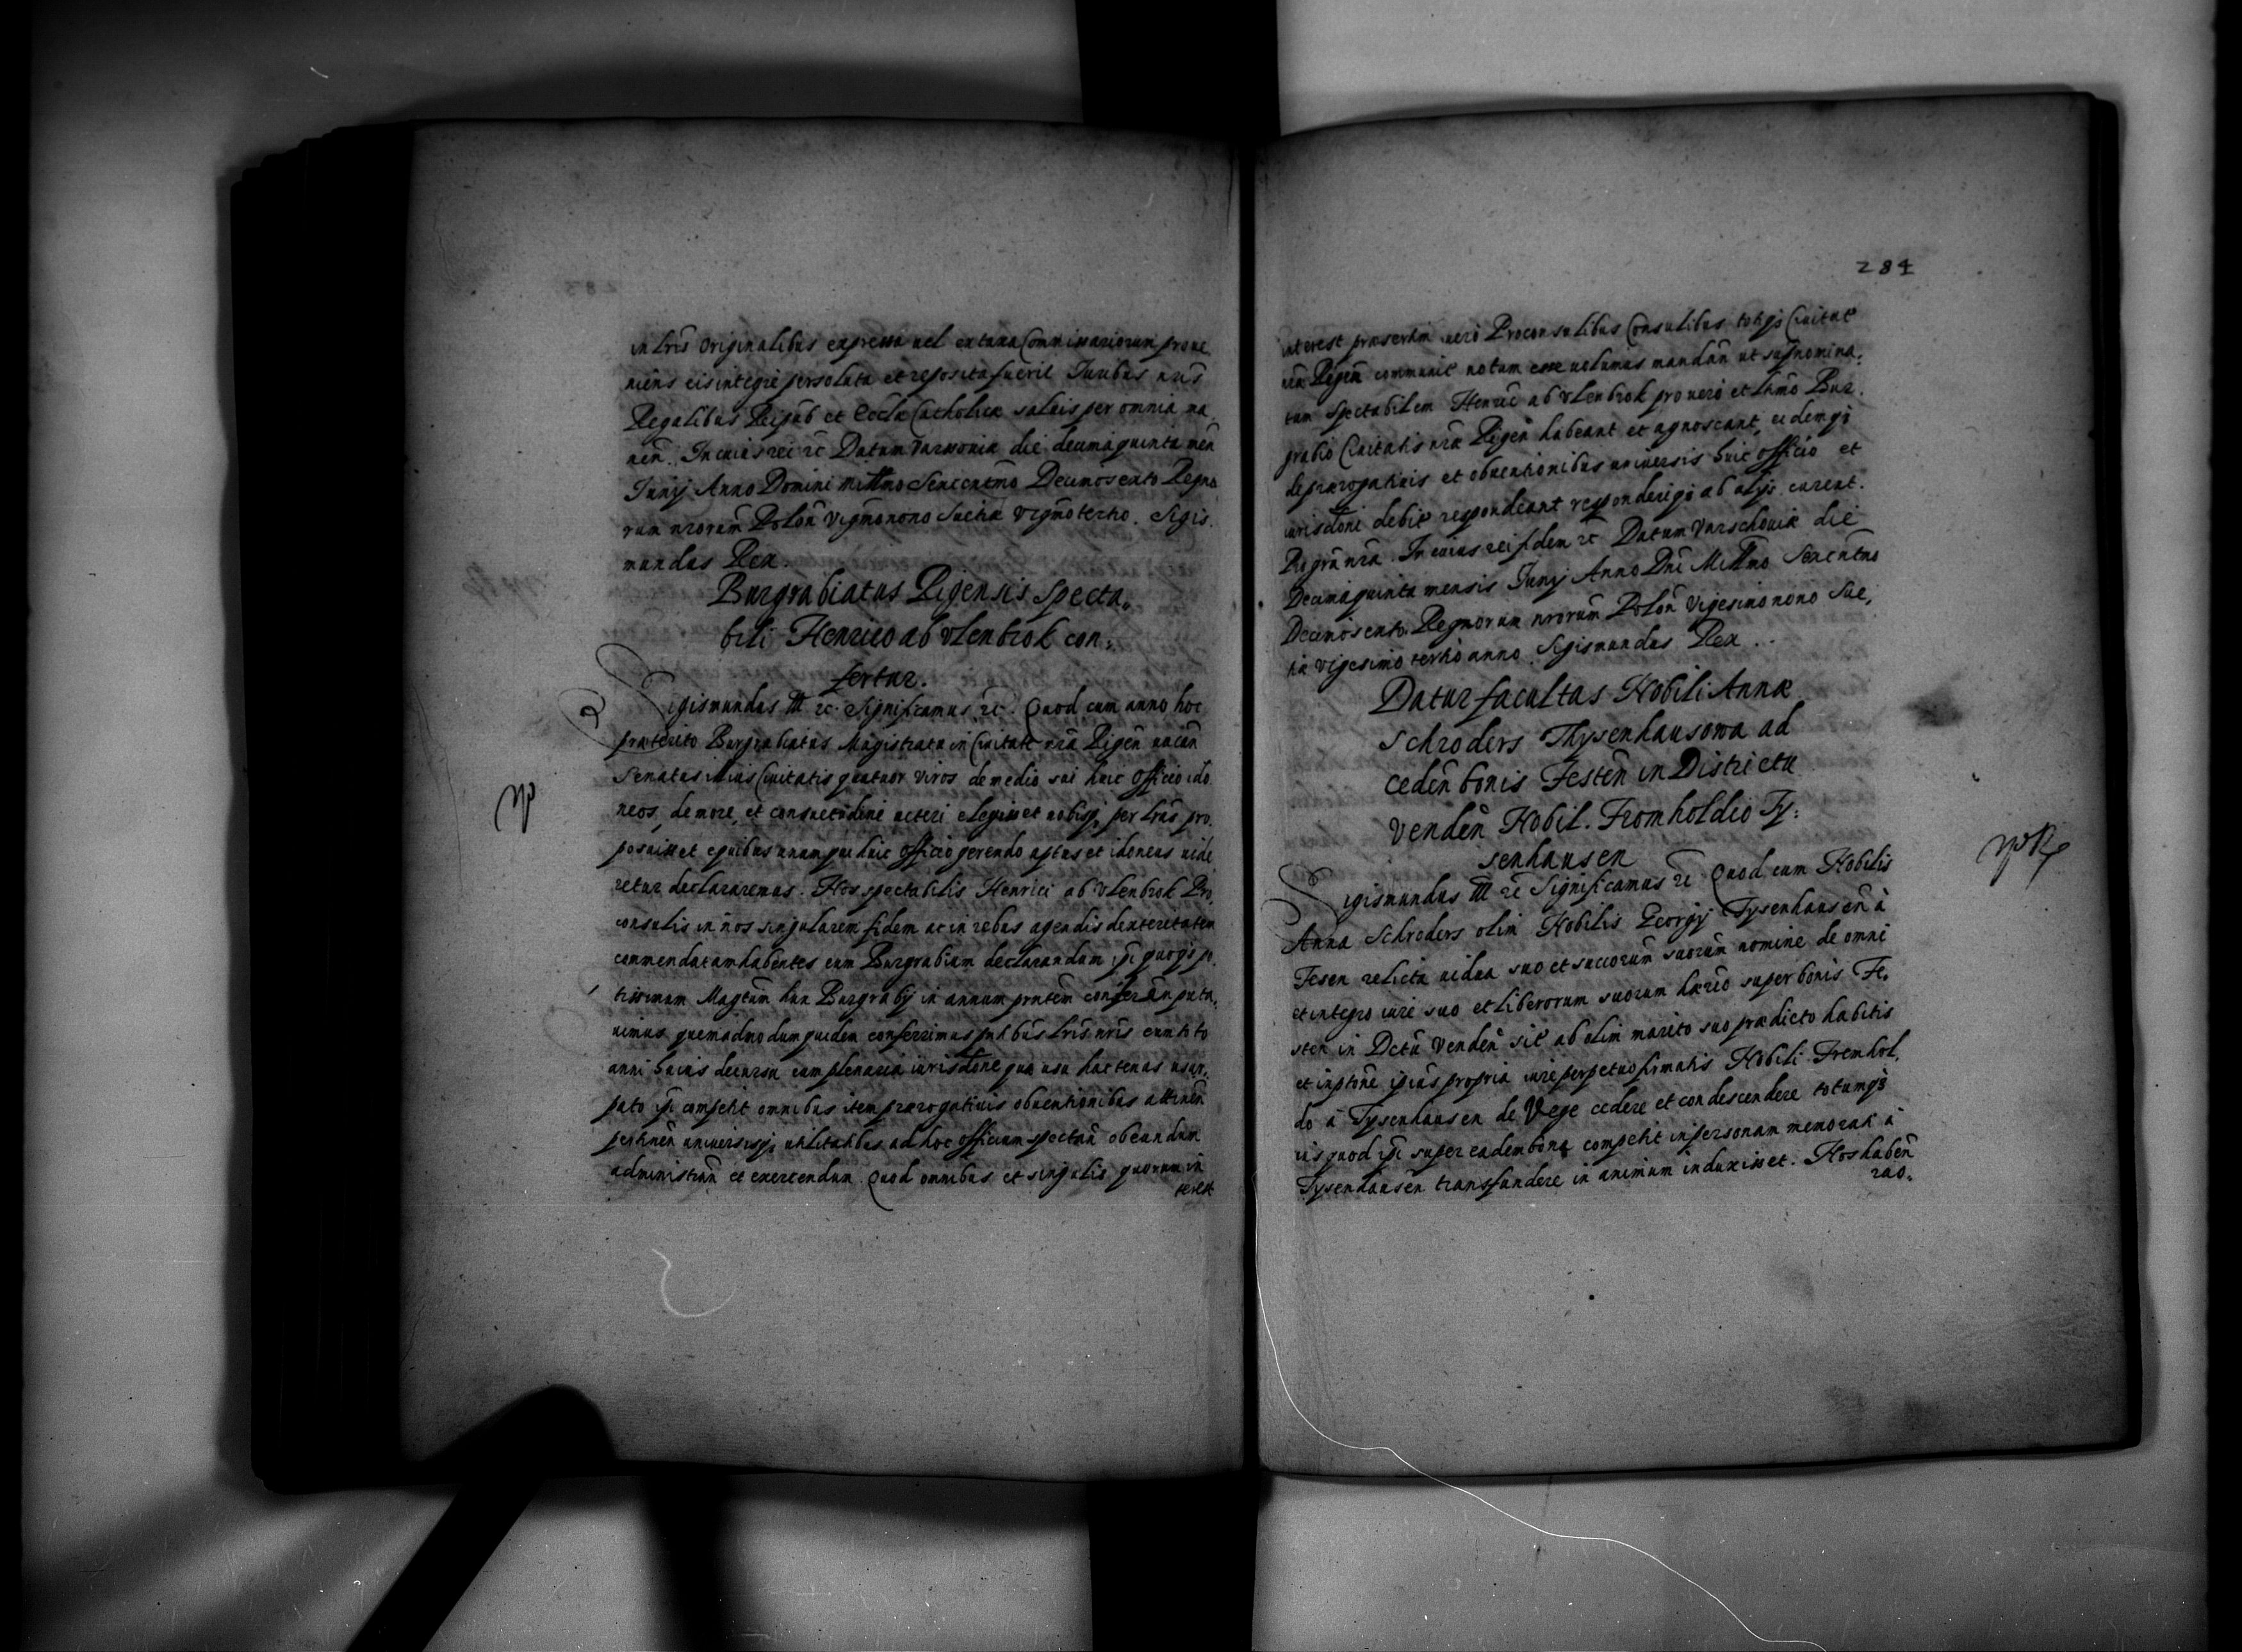 in lris originalibus expressa uel ex taxa Commissariorum proue,
niens eis integre persoluta et reposita fuerit Iuribus nris
Regalibus Reipub et Eccliæ Catholicæ saluis per omnia ma,
nen. In cuius rei rc Datum Varsoviæ die decimaquinta men
Iunij Anno Domini millmo Sexcentmo Decimosexto Regno
rum nrorum Polon Vigmonono Suetiæ Vigmotertio. Sigis,
mundus Rex.
Burgrabiatus Rigensis Specta,
bili Henrico ab Vlenbrok con,
fertur.
Sigismundus III rc. Significamus rc. Quod cum anno hoc
præterito Burgrabiatus Magistratu in Ciuitate nra Rigen uacan
Senatus illius Ciuitatis quatuor viros de medio sui huic officio ido
neos, de more, et consuetudine ueteri elegisset nobisq per lras pro,
posuisset equibus unum qui huic officio gerendo aptus et idoneus uide
retur declararemus. Nos spectabilis Henrici ab Vlenbrok Pro,
consulis in nos singularem fidem ac in rebus agendis dexteritatem
commendatam habentes eum Burgrabium declarandum ipi quoqs po,
tissimum Magtum hun Burgrabij in annum prntem conferan puta,
uimus quemadmodum quidem conferrimus pntibus lris nris eum toto
anni huius decursu cum plenaria iurisdone qua usu hactenus usur,
pato ipi competit omnibus item prærogatiuis obuentionibus attinen
pertinen universisq utilitatibus ad hoc officium spectan obeundum
administran et exercendum. Quod omnibus et singulis quorum in
terest
284
interest præsertim uero Proconsulibus Consulibus totiqs Ciuitat
nræ Rigen communit notum esse uolumus mandan ut supnomina,
tum Spectabilem Henric ab Vlenbrok pro uero et ltimo Bur,
grabio Ciuitatis nræ Rigen habeant et agnoscant, eidemqs
de prærogatiuis et obuentionibus uniuersis huic officio et
iurisdoni debit respondeant responderiqs ab alijs curent.
Pro gra nra. In cuius rei fidem rc Datum Varschouiæ die
Decimaquinta mensis Iunij Anno Dni Millmo Sexcntmo
Decimosexto Regnorum nrorum Polon Vigesimo nono Sue,
tiæ vigesimo tertio anno. Sigismundus Rex ..
Datur facultas Nobili Annæ
Schroders Thysenhausowa ad
ceden bonis Festen in Districtu
Venden Nobil. Fromholdio Ty,
senhausen
Sigismundus III rc Significamus rc Quod cum Nobilis
Anna Schroders olim Nobilis Georgij Tysenhausen à
Fesen relicta uidua suo et succorum suorum nomine de omni
et integro iure suo et liberorum suorum hærio super bonis Fe,
sten in Dctu Venden sit ab olim marito suo prædicto habitis
et inptone ipius propria iure perpetuo firmatis Nobili Fremhol,
do à Tysenhausen de Vege cedere et condescendere totumqs
ius quod ipi super eadem bona competit in personam memorati à
Tysenhausen transfundere in animum induxisset. Nos haben
rao.